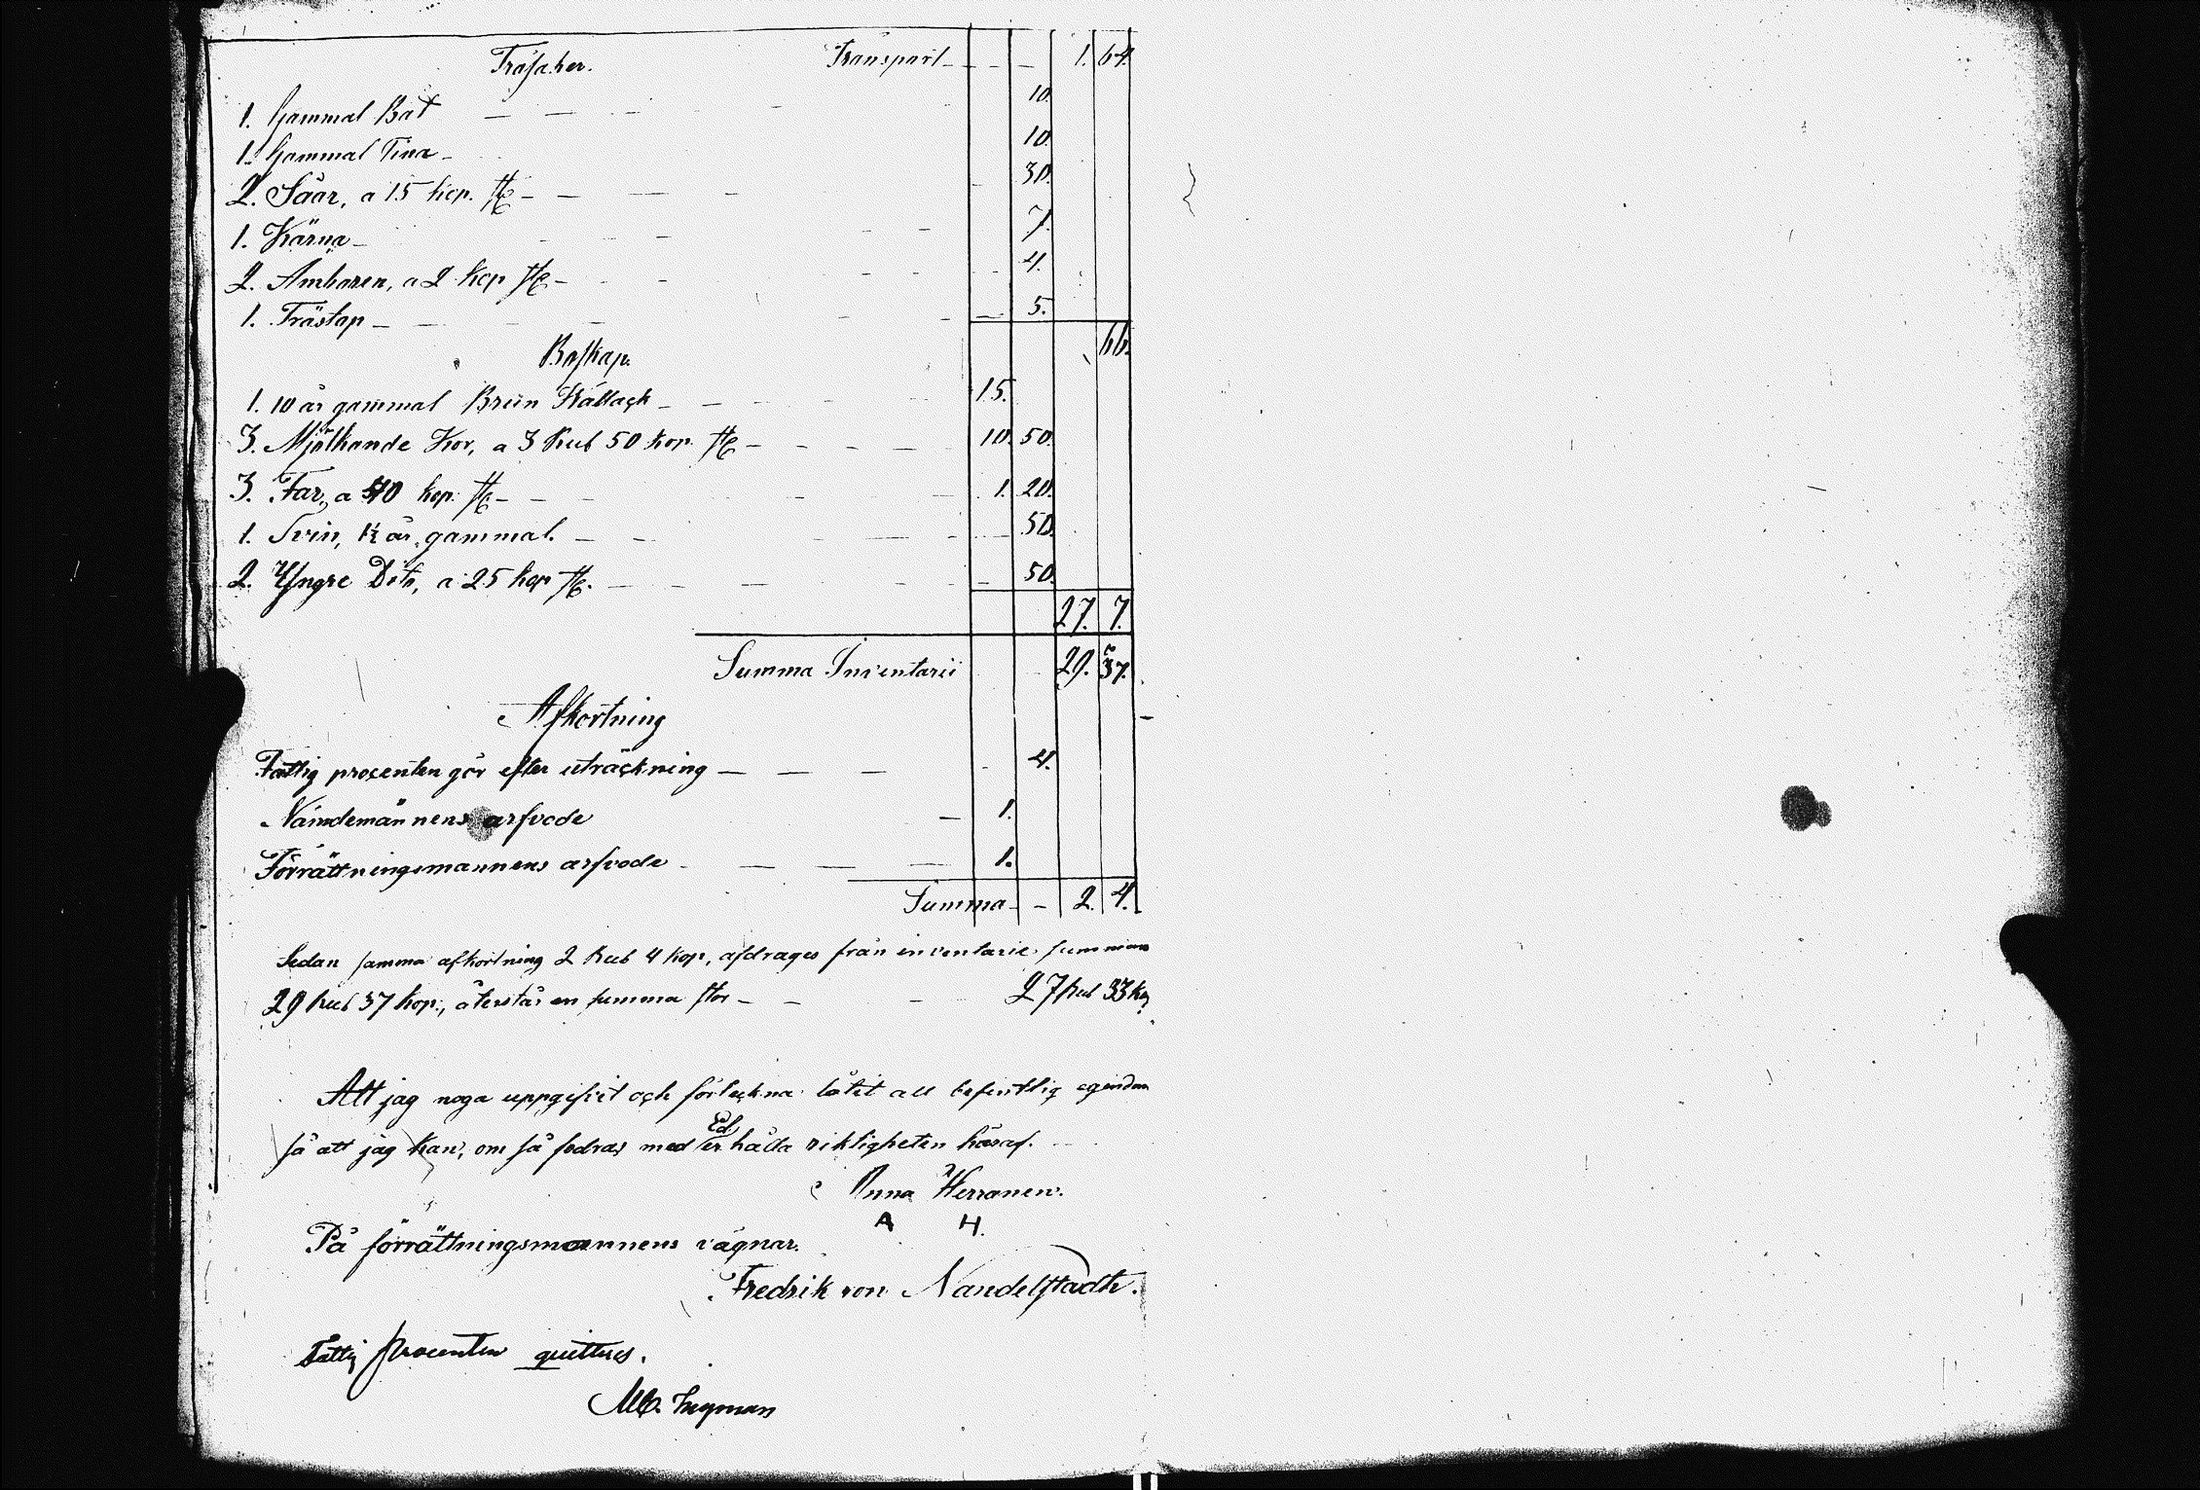 Träsaker. Transport 1. 64.
1. Gammal Båt 10.
1. Gammal Tina 10.
2. Såar, a 15 kop. st 30.
1. Kärna 7.
2. Ämbaren, a 2 kop st 4.
1. Trästop 5.
66.
Boskap.
1. 10 år gammal Brun Kållack 15.
3. Mjölkande Kor, a 3 Rub 50 kop. st 10. 50.
3. Får, a 40 kop. st 1. 20.
1. Svin, 1½ år gammal. 50.
2. Yngre Dito, a 25 kop st. 50.
27. 7.
Summa Inventarii 29. 37.
Afkortning
Fattig procenten gör efter uträckning 4.
Nämdemännens arfvode 1.
Förrättningsmannens arfvode 1.
Summa 2. 4.
Sedan samma afkortning 2 Rub 4 kop, afdrages från inventarie summan
29 Rub 37 kop., återstår en summa stor 27 Rub 33 kop
Att jag noga uppgifvit och förteckna låtit all befintlig egendom
så att jag kan, om så fodras med Ed erhålla riktigheten häraf.
Anna Herranen.
A H.
På förrättningsmannens vägnar.
Fredrik von Nandelstadh.
Fattig procenten quitteras.
Ingman